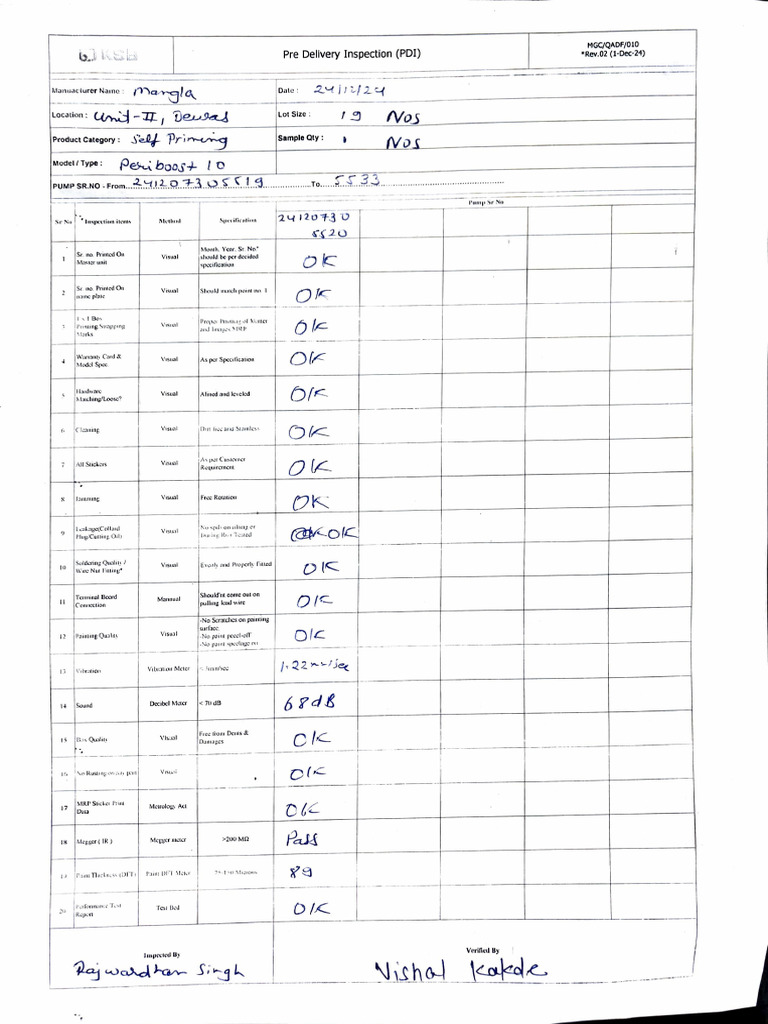 KSB
Pre Delivery Inspection (PDI)
MGC/QADF/010
*Rev.02 (1-Dec-24)
Manuacturer Name : Mangla
Date : 24/12/24
Location : Unit-II, Dewas
Lot Size : 19 Nos
Product Category : Self Priming
Sample Qty : 1 Nos
Model / Type : Periboost 10
PUMP SR.NO - From 241207305519 To 5533
Pump Sr No
Sr No Inspection items Method Specification 24120730 5520
1 Sr. no. Printed On Moster unit Visual Month. Year. Sr. No* should be per decided specification OK
2 Sr. no. Printed On name plate Visual Should match point no. 1 OK
3 1 x 1 Box Printing/Strapping Marks Visual Proper Printing of Matter and Images MRP OK
4 Warranty Card & Model Spec. Visual As per Specification OK
5 Hardware Matching/Loose? Visual Alined and leveled OK
6 Cleaning Visual Dirt free and Stainless OK
7 All Stickers Visual As per Customer Requirement OK
8 Jamming Visual Free Rotation OK
9 Leakage(Collard Plug/Cutting Oil) Visual OK
10 Soldering Quality / Wire Nut Fitting* Visual Evenly and Properly Fitted OK
11 Terminal Board Connection Mannual Should'nt come out on pulling lead wire OK
12 Painting Quality Visual -No Scratches on painting surface. -No paint peeel-off -No paint spoilage on OK
13 Vibration Vibration Meter 1.22 mm/sec
14 Sound Decibel Meter < 70 dB 68dB
15 Box Quality Visual Free from Dents & Damages OK
16 No Rusting on any part Visual OK
17 MRP Sticker Print Data Metrology Act OK
18 Megger ( IR ) Megger meter >200 MΩ Pass
19 Paint Thickness (DFT) Paint DFT Meter Microns 89
20 Performance Test Report Test Bed OK
Inspected By
Verified By
Rajwardhan Singh
Vishal Kakde